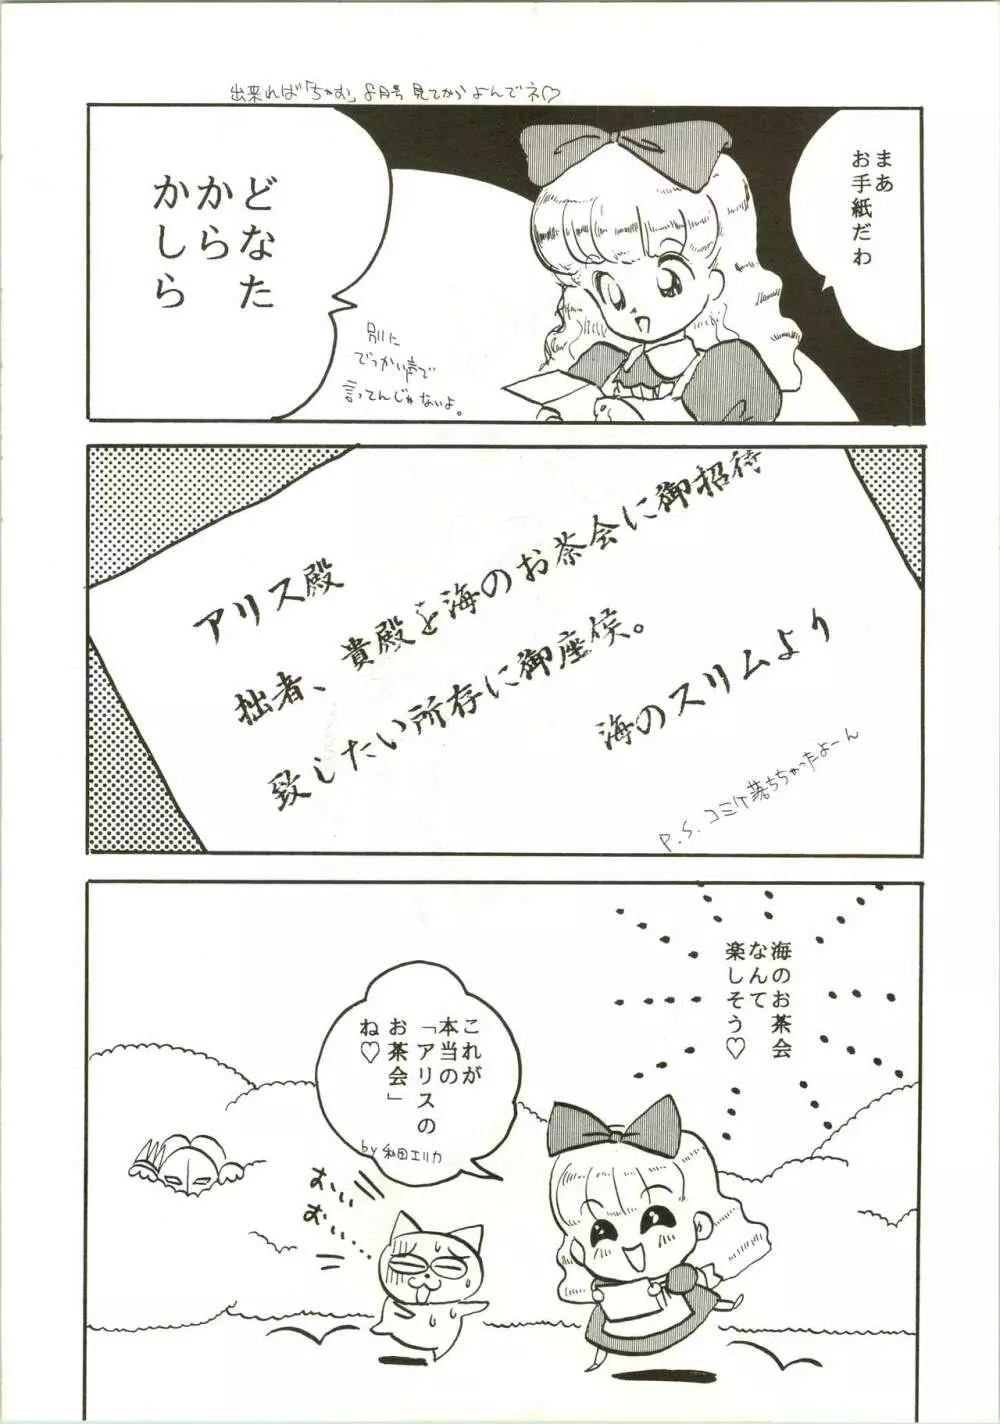 出来れば「ちゃお」8月号見てからよんでネ♡
まあ
お手紙だわ
どなた
から
かしら
別に
でっかい声で
言ってんじゃないよ。
アリス殿
拙者、貴殿を海のお茶会に御招待
致したい所存に御座侯。
海のスリムより
P.S.コミケ落ちちゃったよーん
海のお茶会
なんて
楽しそう♡
これが
本当の
「アリスの
お茶会」
ね♡
by 和田エリカ
おいおい……